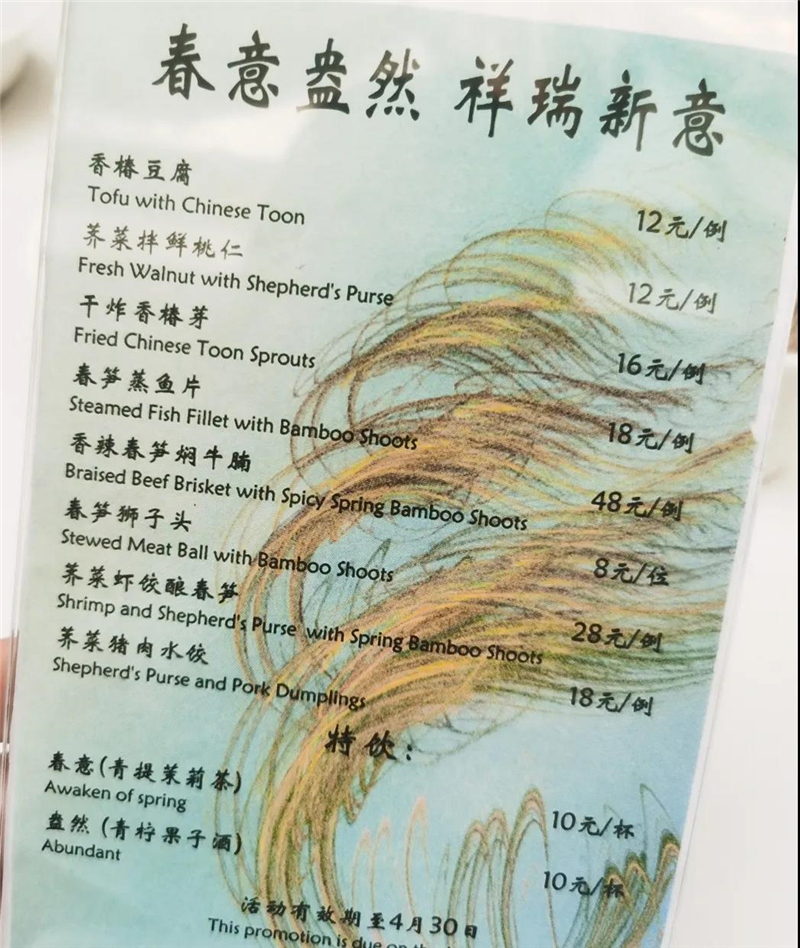 春意盎然 祥瑞新意
香椿豆腐
Tofu with Chinese Toon
12元/例
荠菜拌鲜桃仁
Fresh Walnut with Shepherd's Purse
12元/例
干炸香椿芽
Fried Chinese Toon Sprouts
16元/例
春笋蒸鱼片
Steamed Fish Fillet with Bamboo Shoots
18元/例
香辣春笋焖牛腩
Braised Beef Brisket with Spicy Spring Bamboo Shoots
48元/例
春笋狮子头
Stewed Meat Ball with Bamboo Shoots
8元/位
荠菜虾饺酿春笋
Shrimp and Shepherd's Purse with Spring Bamboo Shoots
28元/例
荠菜猪肉水饺
Shepherd's Purse and Pork Dumplings
18元/例
特饮:
春意(青提茉莉茶)
Awaken of spring
10元/杯
盎然 (青柠果子酒)
Abundant
10元/杯
活动有效期至4月30日
This promotion is due on